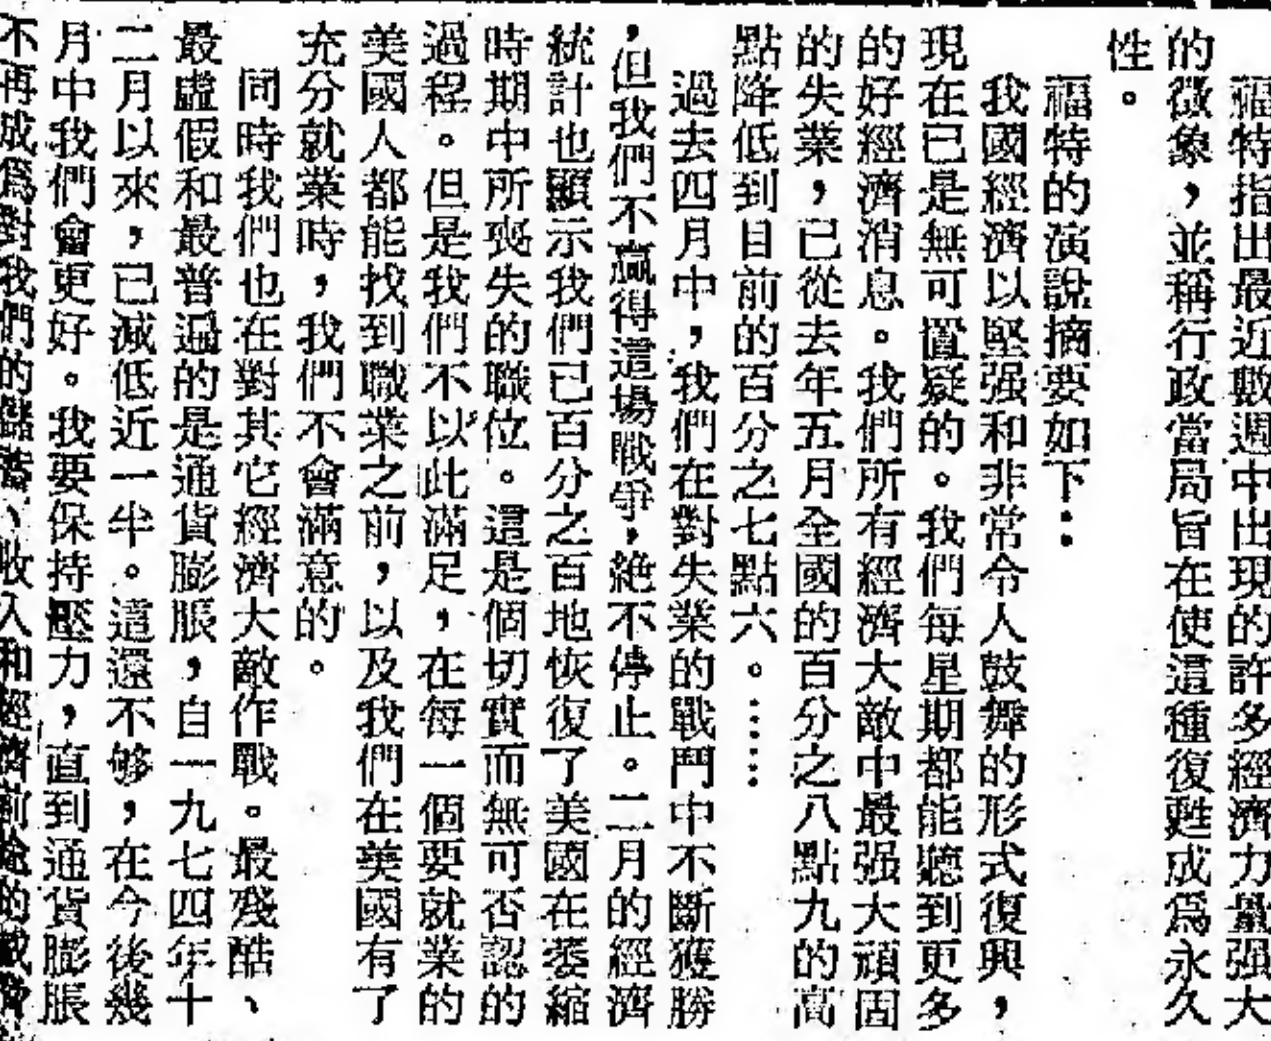 福特指出最近數週中出現的許多經濟力量强大
的徵象，並稱行政當局旨在使這種復甦成爲永久
性。
福特的演說摘要如下：
我國經濟以堅强和非常令人鼓舞的形式復興，
現在已是無可置疑的。我們每星期都能聽到更多
的好經濟消息。我們所有經濟大敵中最强大頑固
的失業，已從去年五月全國的百分之八點九的高
點降低到目前的百分之七點六。……
過去四月中，我們在對失業的戰鬥中不斷獲勝
，但我們不贏得這場戰爭，絕不停止。二月的經濟
統計也顯示我們已百分之百地恢復了美國在萎縮
時期中所喪失的職位。這是個切實而無可否認的
過程。但是我們不以此滿足，在每一個要就業的
美國人都能找到職業之前，以及我們在美國有了
充分就業時，我們不會滿意的。
同時我們也在對其它經濟大敵作戰。最殘酷、
最虛假和最普遍的是通貨膨脹，自一九七四年十
二月以來，已減低近一半。這還不够，在今後幾
月中我們會更好。我要保持壓力，直到通貨膨脹
不再成爲對我們的儲蓄、收入和經濟前途的威脅